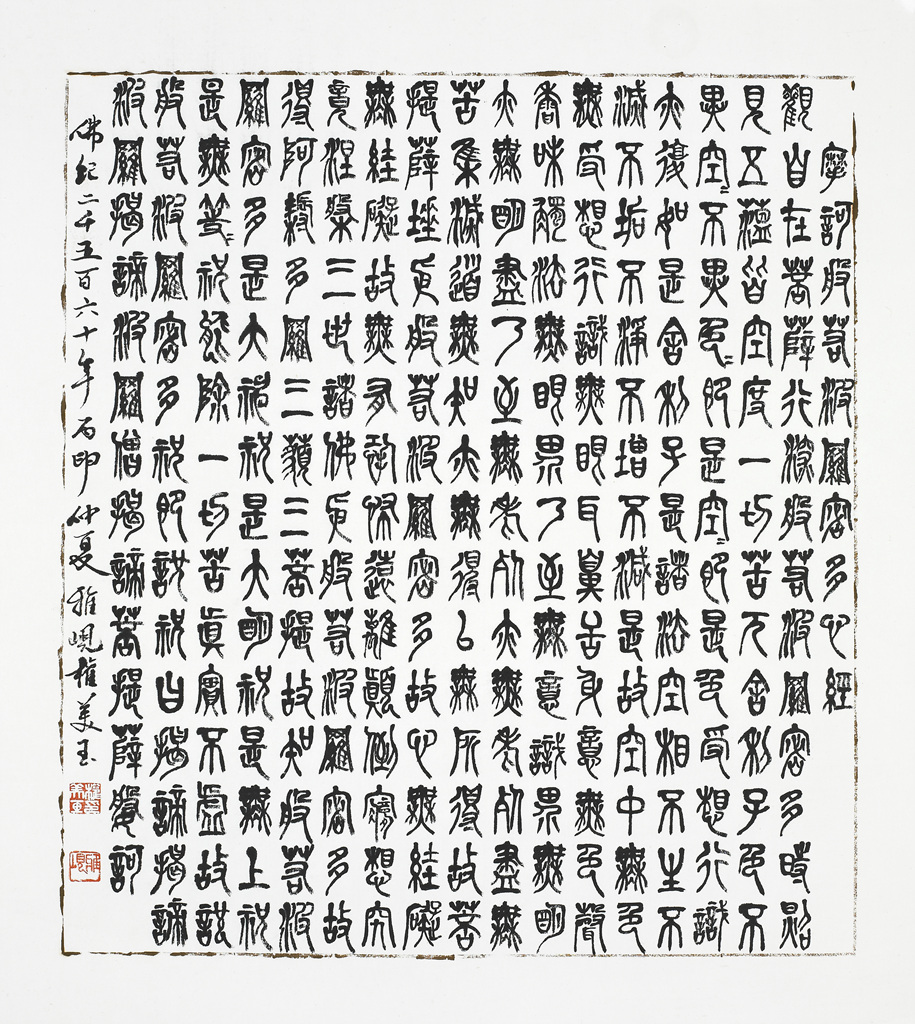 摩訶般若波羅密多心經
觀自在菩薩行深般若波羅密多時照
見五蘊皆空度一切苦厄舍利子色不
異空〻不異色〻即是空〻即是色受想行識
亦復如是舍利子是諸法空相不生不
滅不垢不淨不增不減是故空中無色
無受想行識無眼耳鼻舌身意無色聲
香味觸法無眼界乃至無意識界無明
亦無明盡乃至無老死亦無老死盡無
苦集滅道無知亦無得以無所得故菩
提薩埵依般若波羅密多故心無絓礙
無絓礙故無有恐怖遠離顚倒夢想究
竟涅槃三世諸佛依般若波羅密多故
得阿耨多羅三藐三菩提故知般若波
羅密多是大神祝是大明祝是無上祝
是無等〻祝能除一切苦眞實不虛故說
般若波羅密多祝即說祝曰揭諦揭諦
波羅揭諦波羅僧揭諦菩提薩婆訶
佛紀二千五百六十年丙申仲夏雅峴權美玉
雅峴